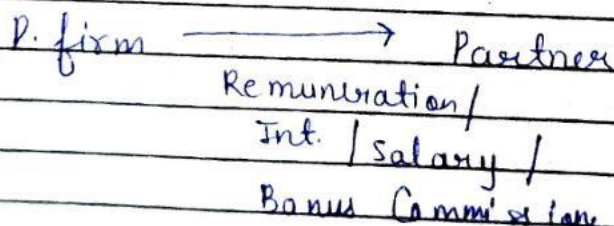 P. firm → Partner
Remunration/
Int. / Salary /
Bonus Commission